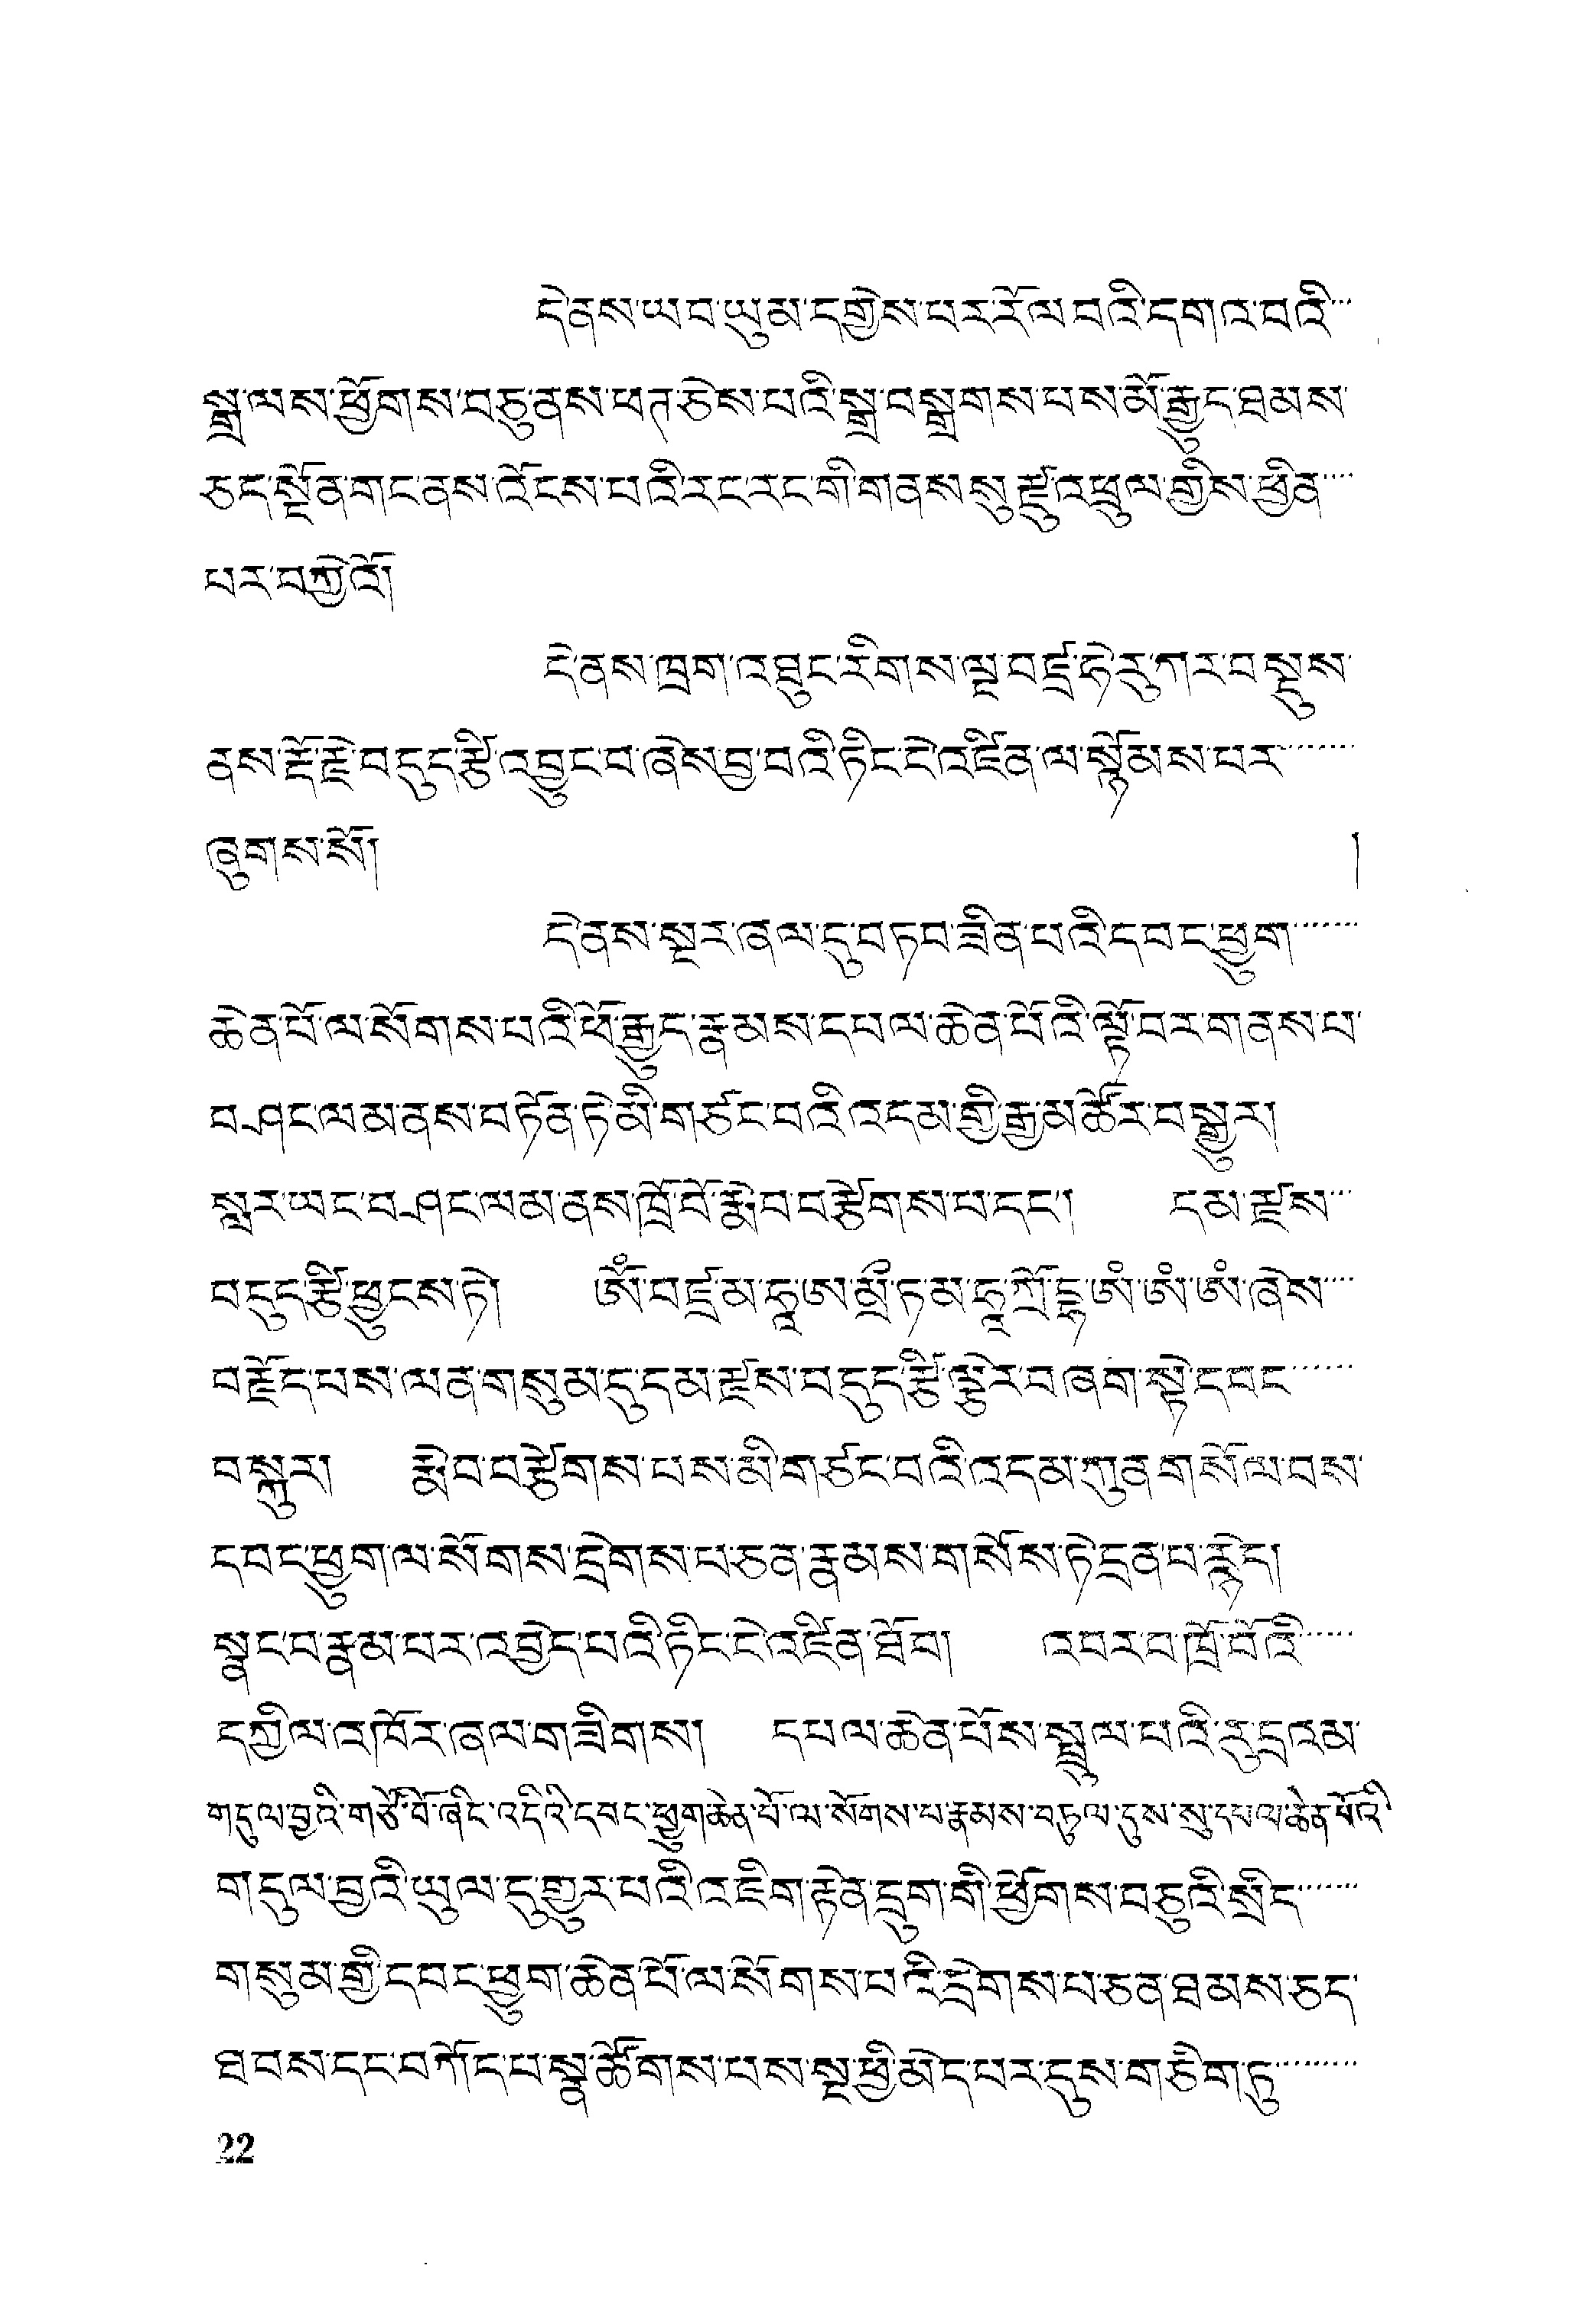 དེ་ནས་ཡབ་ཡུམ་དགྱེས་པར་རོལ་བའི་དགའ་བའི་
སྒྲ་ལས་ཕྱོགས་བཅུ་ནས་ཕཊ་ཅེས་པའི་སྒྲ་བསྒྲགས་པས་མོ་རྒྱུད་ཐམས་
ཅད་སྔོན་གང་ནས་འོངས་པའི་རང་རང་གི་གནས་སུ་རྫུ་འཕྲུལ་གྱིས་ཕྱིན་
པར་བཀྱེའོ།
དེ་ནས་ཁྲག་འཐུང་རིགས་ལྔ་བཛྲ་ཧེ་རུ་ཀར་བསྡུས་
ནས་རྡོ་རྗེ་བདུད་རྩི་འབྱུང་བ་ཞེས་བྱ་བའི་ཏིང་ངེ་འཛིན་ལ་སྙོམས་པར་
ཞུགས་སོ། །
དེ་ནས་སྔར་ཞལ་དུ་བཏབ་ཟིན་པའི་དབང་ཕྱུག་
ཆེན་པོ་ལ་སོགས་པའི་ཕོ་རྒྱུད་རྣམས་དཔལ་ཆེན་པོའི་ལྟོ་བར་གནས་པ་
བཤང་ལམ་ནས་བཏོན་ཏེ་མི་གཙང་བའི་འདམ་གྱི་རྒྱ་མཚོར་བསྒྱུར།
སླར་ཡང་བཤང་ལམ་ནས་ཁྲོ་བོ་རྨེ་བ་བརྩེགས་པ་དང༌། དམ་རྫས་
བདུད་རྩི་ཕྱུངས་ཏེ། ཨོཾ་བཛྲ་མ་ཧཱ་ཨ་མྲྀ་ཏ་མ་ཧཱ་ཀྲོ་དྷ་ཨཾ་ཨཾ་ཨཾ་ཞེས་
བརྗོད་པས་ལན་གསུམ་དུ་དམ་རྫས་བདུད་རྩི་ལྕེར་བཞག་སྟེ་དབང་
བསྐུར། རྨེ་བ་བརྩེགས་པས་མི་གཙང་བའི་འདམ་ཀུན་གསོལ་བས་
དབང་ཕྱུག་ལ་སོགས་དྲེགས་པ་ཅན་རྣམས་གསོས་ཏེ་དྲན་པ་རྙེད།
སྣང་བ་རྣམ་པར་འབྱེད་པའི་ཏིང་ངེ་འཛིན་ཐོབ། འབར་བ་ཁྲོ་བོའི་
དཀྱིལ་འཁོར་ཞལ་གཟིགས། དཔལ་ཆེན་པོས་སྤྲུལ་པའི་རུ་དྲ་འམ་
གདུལ་བྱའི་གཙོ་བོ་ཞིང་འདིའི་དབང་ཕྱུག་ཆེན་པོ་ལ་སོགས་པ་རྣམས་བཏུལ་དུས་སུ་དཔལ་ཆེན་པོའི་
གདུལ་བྱའི་ཡུལ་དུ་གྱུར་པའི་འཇིག་རྟེན་དྲུག་གི་ཕྱོགས་བཅུའི་སྲིད་
གསུམ་གྱི་དབང་ཕྱུག་ཆེན་པོ་ལ་སོགས་པའི་དྲེགས་པ་ཅན་ཐམས་ཅད་
ཐབས་དང་བཀོད་པ་སྣ་ཚོགས་པས་སྔ་ཕྱི་མེད་པར་དུས་གཅིག་ཏུ་
22